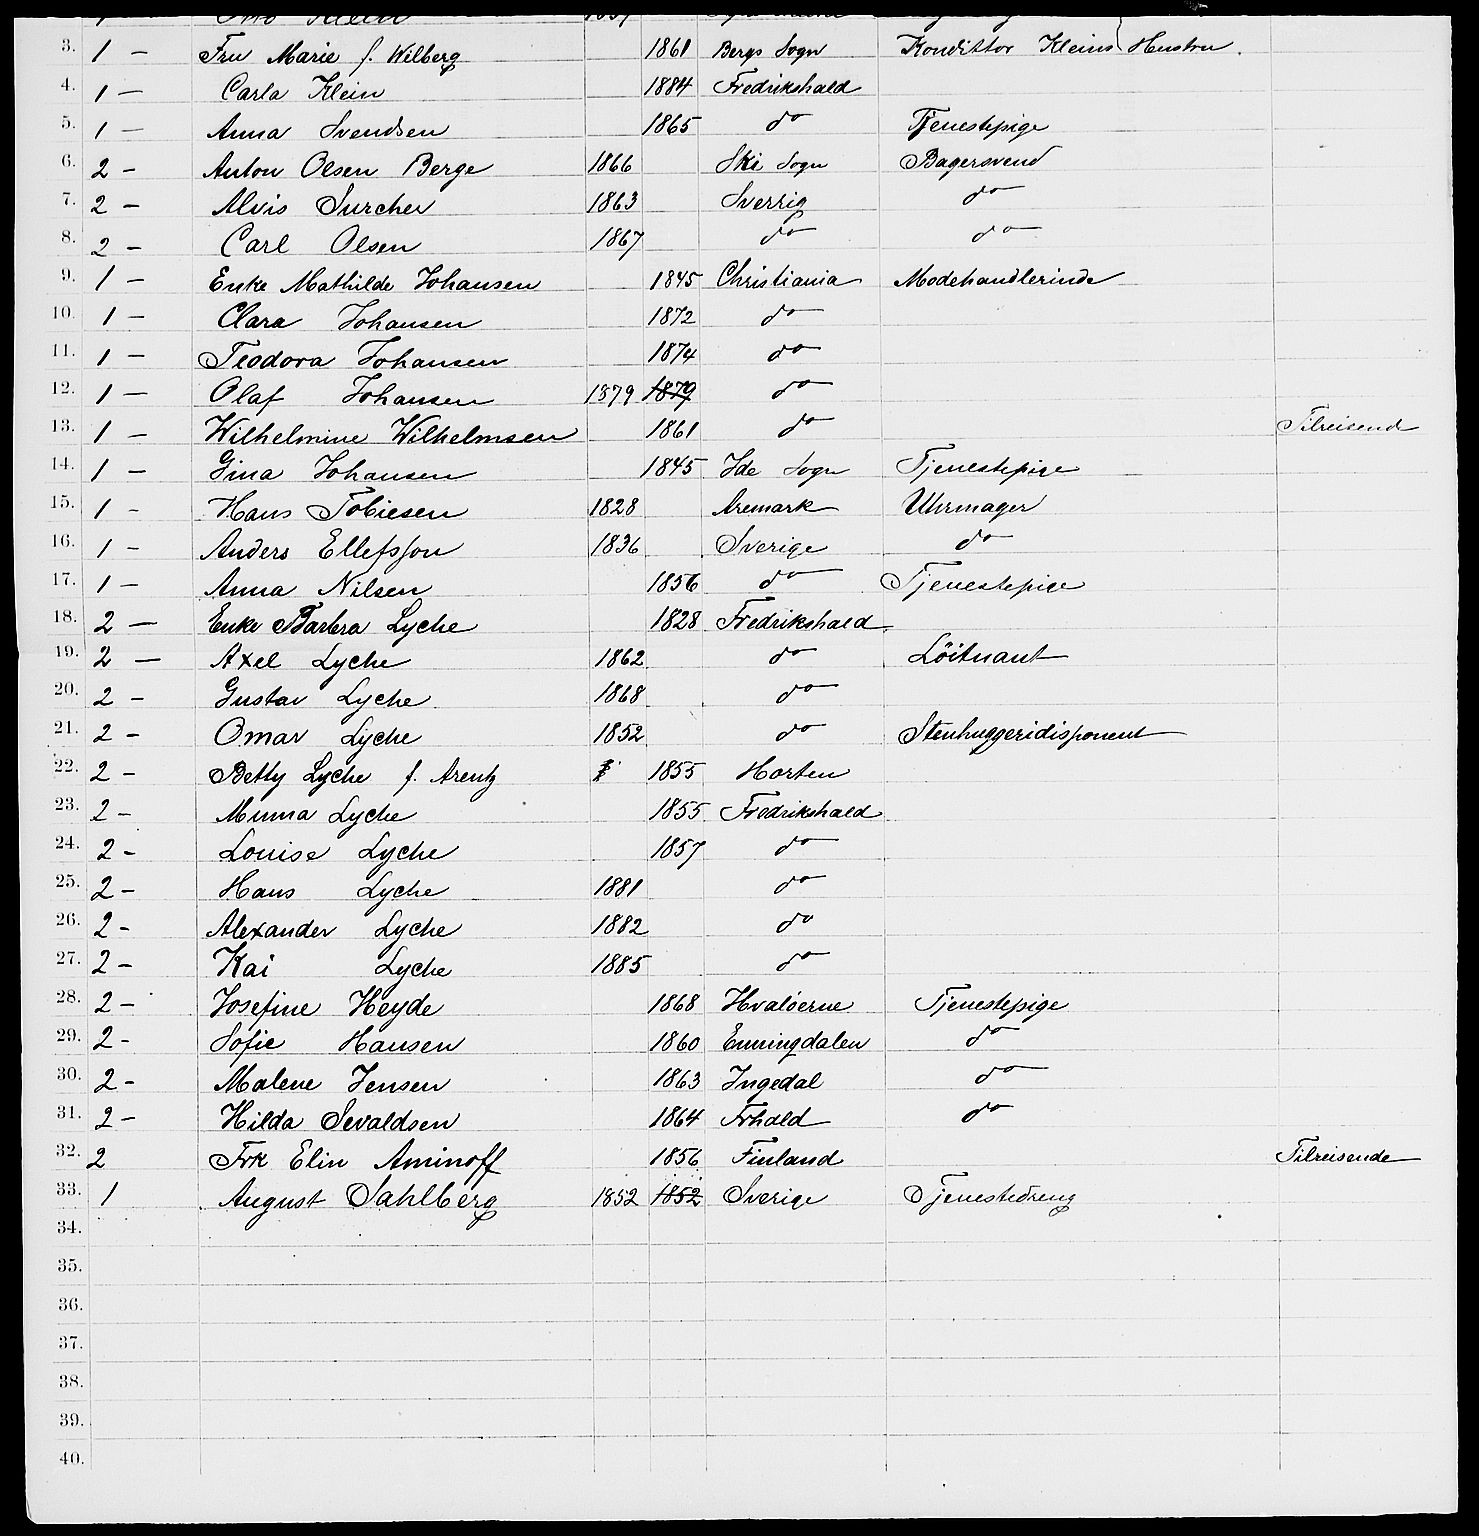 Klein
3. 1 — Fru Marie f. Wilberg 1861 Bergs Sogn Kondittor Kleins Hustru.
4. 1 — Carla Klein 1884 Fredrikshald
5. 1 — Anna Svendsen 1865 do Tjenestepige
6. 2 - Anton Olsen Berge 1866 Ski Sogn Bagersvend
7. 2 - Alvis Surcher 1863 Sverrig do
8. 2 - Carl Olsen 1867 do do
9. 1 — Enke Mathilde Johansen 1845 Christiania Modehandlerinde
10. 1 — Clara Johansen 1872 do
11. 1 — Teodora Johansen 1874 do
12. 1 — Olaf Johansen 1879 1879 do
13. 1 — Wilhelmine Wilhelmsen 1861 do Tilreisende
14. 1 — Gina Johansen 1845 Ide Sogn Tjenestepige
15. 1 - Hans Tobiesen 1828 Aremark Uhrmager
16. 1 - Anders Ellefsson 1836 Sverige do
17. 1 - Anna Nilsen 1856 do Tjenestepige
18. 2 — Enke Barbra Lyche 1828 Fredrikshald
19. 2 — Axel Lyche 1862 do Löitnant
20. 2 - Gustav Lyche 1868 do
21. 2 - Omar Lyche 1852 do Stenhuggeridisponent
22. 2 - Betty Lyche f. Arentz 1855 Horten
23. 2 - Minna Lyche 1855 Fredrikshald
24. 2 - Louise Lyche 1857 do
25. 2 - Hans Lyche 1881 do
26. 2 - Alexander Lyche 1882 do
27. 2 - Kai Lyche 1885 do
28. 2 - Josefine Heyde 1868 Hvaløerne Tjenestepige
29. 2 - Sofie Hansen 1860 Enningdalen do
30. 2 - Malene Jensen 1863 Ingedal do
31. 2 - Hilda Sevaldsen 1864 Frhald do
32. 2 Frk Elin Aminoff 1856 Finland Tilreisende
33. 1 August Sahlberg 1852 1852 Sverige Tjenestedreng
34.
35.
36.
37.
38.
39.
40.